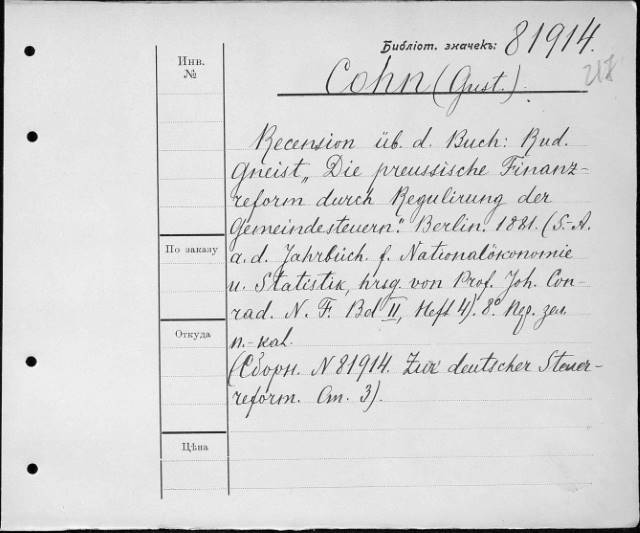 Библіот. значекъ: 81914.
218
Инв.
№
Cohn (Gust.).
Recension üb. d. Buch: Rud.
Gneist „Die preussische Finanz-
reform durch Regulirung der
Gemeindesteuern". Berlin. 1881. (S.-A.
a. d. Jahrbüch. f. Nationalökonomie
u. Statistik, hrsg. von Prof. Joh. Con-
rad. N. F. Bd II, Heft 4). 8°. Пер. зел.
п.-кал.
(Сборн. N 81914. Zur deutscher Steuer-
reform. Ст. 3).
По заказу
Откуда
Цѣна